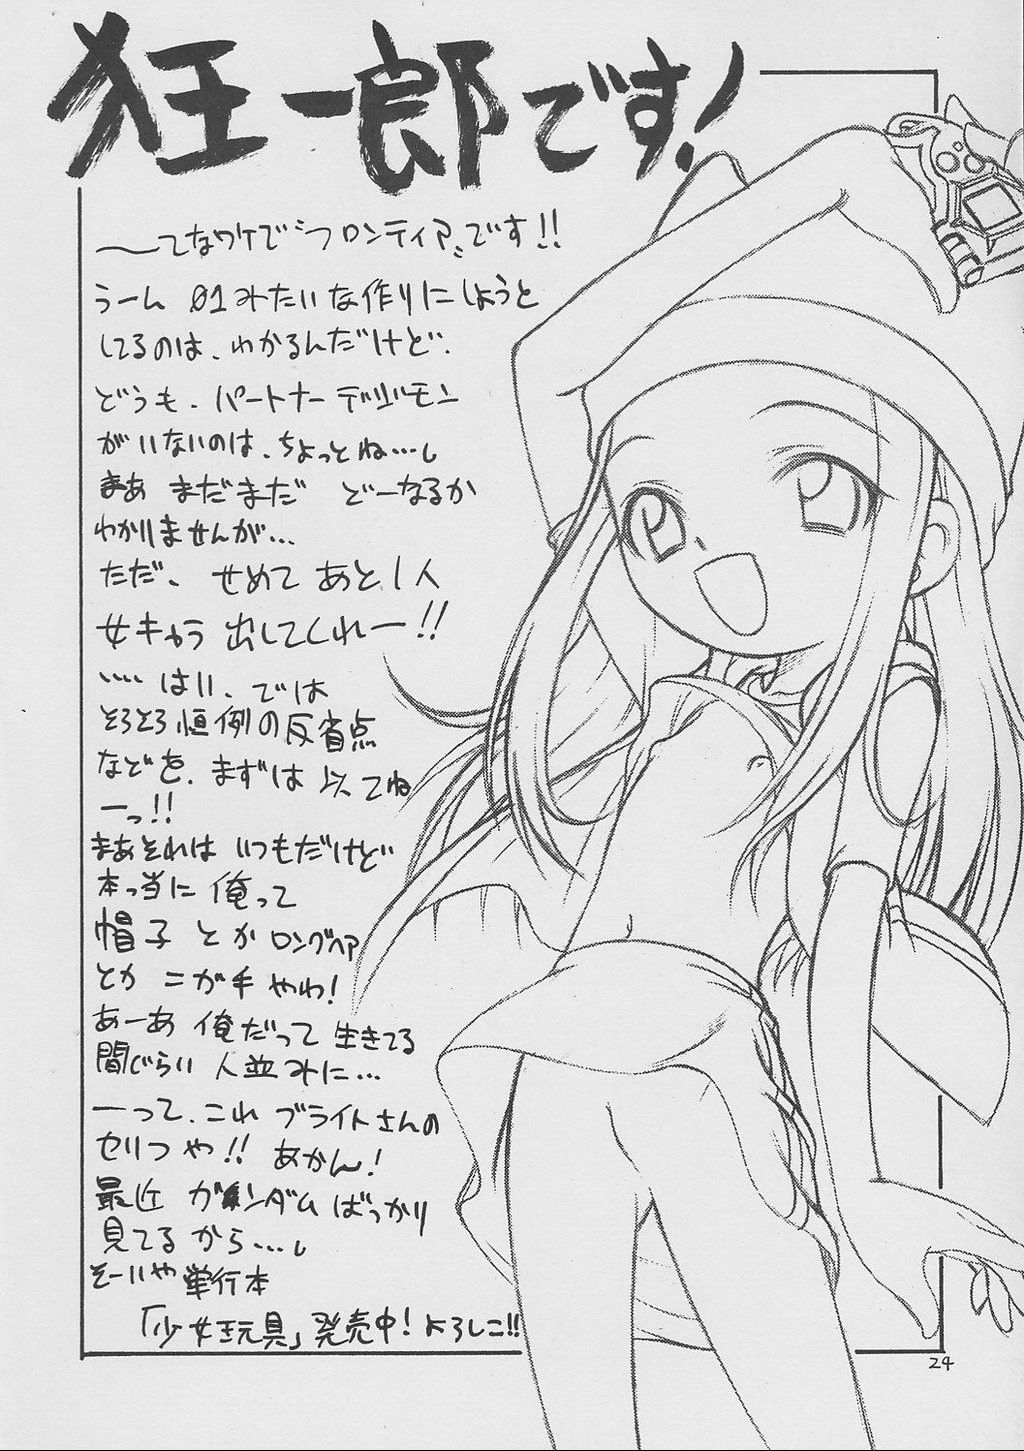 狂一郎です!
〜てなワケで"フロンティア"です!!
うーん 01みたいな作りにしようと
してるのは、わかるんだけど、
どうも、パートナーデジモン
がいないのは、ちょっとね…。
まあ まだまだ どーなるか
わかりませんが…
ただ、せめて あと1人
女キャラ 出してくれー!!
‥‥ はい、では
そろそろ恒例の反省点
などを、まずは 以てね
ーっ!!
まあそれは いつもだけど
本っ当に 俺って
帽子 とか ロングヘア
とか ニガ手 やわ!
あーあ 俺だって 生きてる
間じらい 人並みに…
ーって、これ ブライトさんの
セリフや!! あかん!
最近 ガンダム ばっかり
見てるから…。
そーいや 単行本
「少女玩具」発売中! よろしこ!!
24